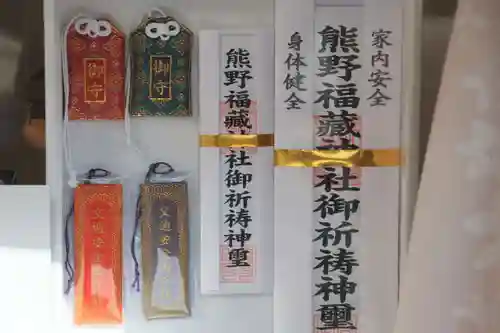 御守
御守
交通安全
交通安全
熊野福藏神社御祈祷神璽
家内安全
熊野福藏神社御祈祷神璽
身体健全